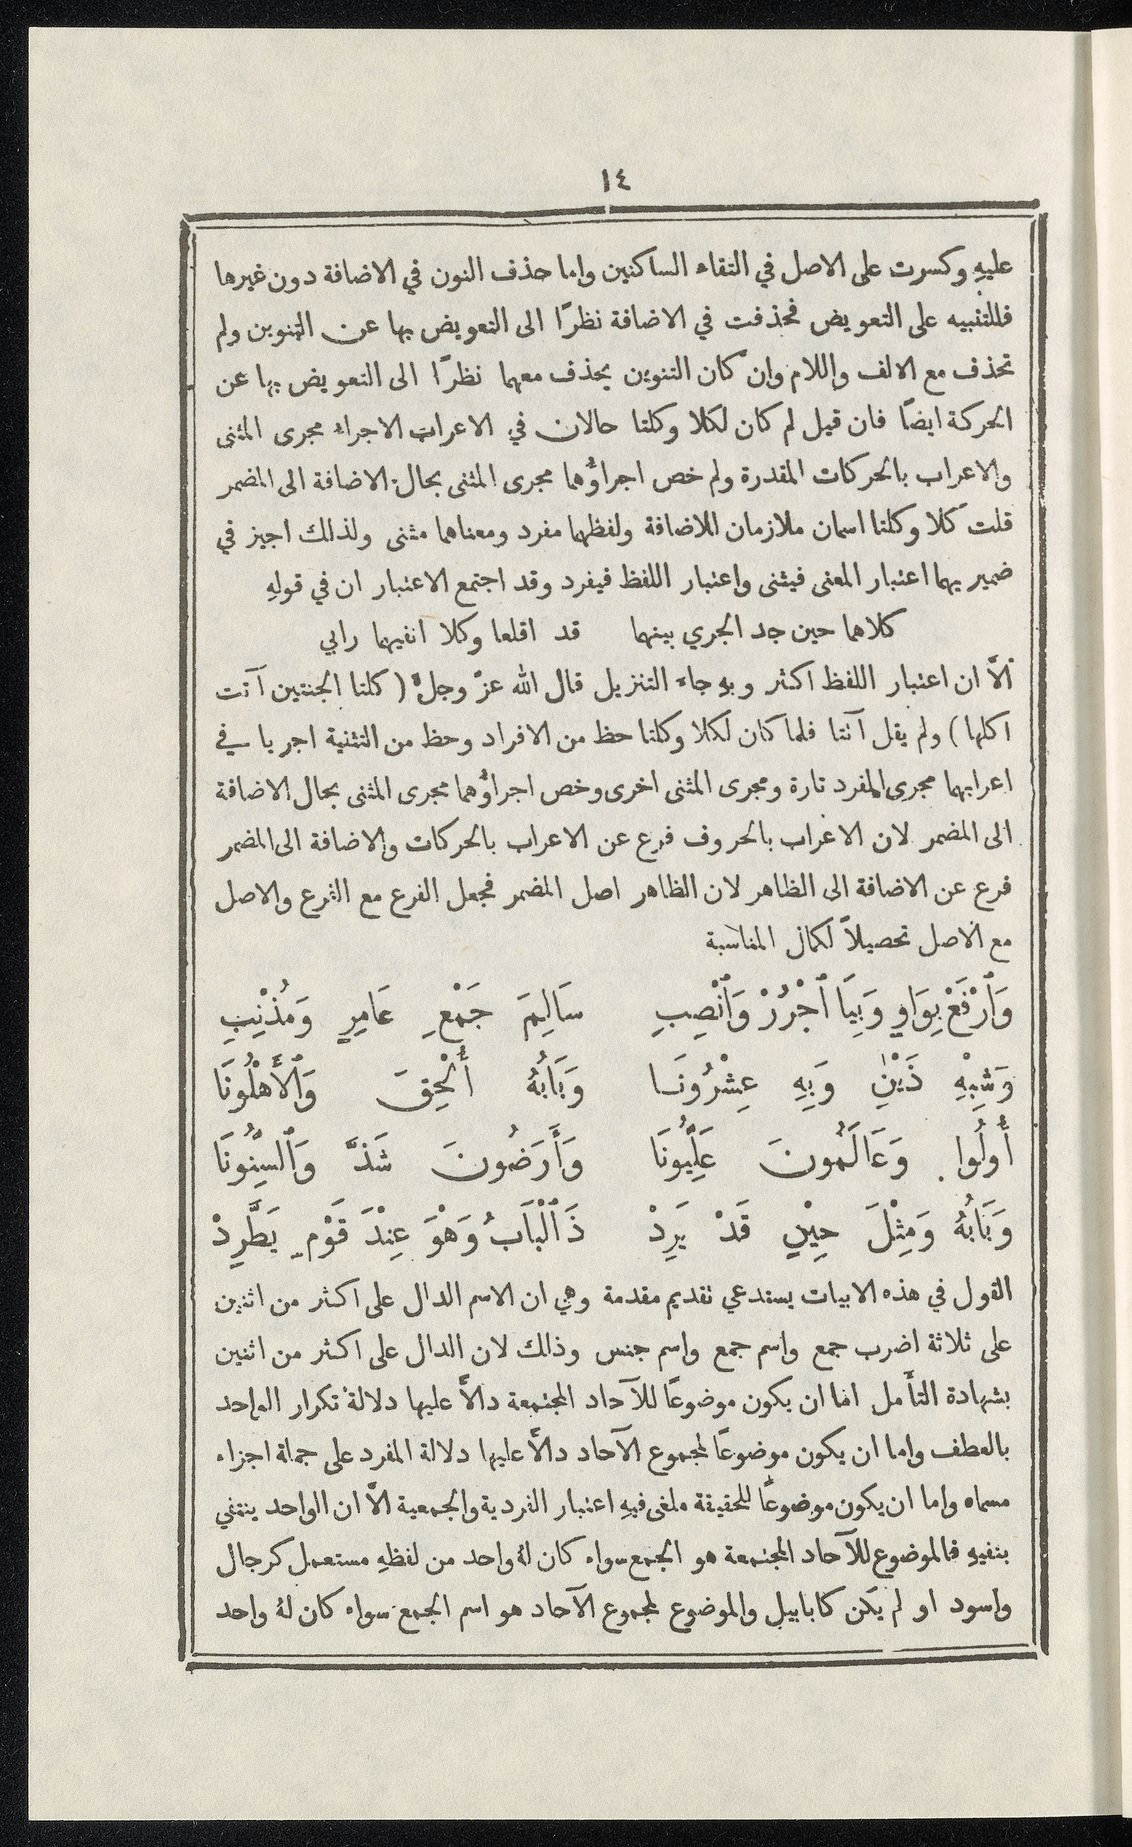 ١٤
عليهِ وكسرت على الاصل في التقاء الساكنين واما حذف النون في الاضافة دون غيرها
فللتنبيه على التعويض فحذفت في الاضافة نظرًا الى التعويض بها عن التنوين ولم
تحذف مع الالف واللام وان كان التنوين يحذف معهما نظرًا الى التعويض بها عن
الحركة ايضًا فان قيل لم كان لكلا وكلتا حالان في الاعراب الاجراء مجرى المثنى
والاعراب بالحركات المقدرة ولم خص اجراؤُهما مجرى المثنى بحال الاضافة الى المضمر
قلت كلا وكلتا اسمان ملازمان للاضافة ولفظهما مفرد ومعناهما مثنى ولذلك اجيز في
ضميريهما اعتبار المعنى فيثنى واعتبار اللفظ فيفرد وقد اجتمع الاعتباران في قولهِ
كلاهما حين جد الجري بينهما قد اقلعا وكلا انفيهما رابي
الاَّ ان اعتبار اللفظ اكثر وبهِ جاء التنزيل قال الله عزَّ وجلَّ (كلتا الجنتين آتت
اكلها) ولم يقل آتتا فلما كان لكلا وكلتا حظ من الافراد وحظ من التثنية اجريا في
اعرابهما مجرى المفرد تارة ومجرى المثنى اخرى وخص اجراؤُهما مجرى المثنى بحال الاضافة
الى المضمر لان الاعراب بالحروف فرع عن الاعراب بالحركات والاضافة الى المضمر
فرع عن الاضافة الى الظاهر لان الظاهر اصل المضمر فجعل الفرع مع الفرع والاصل
مع الاصل تحصيلاً لكمال المناسبة
وَٱرْفَعْ بِوَاوٍ وَبِيَا ٱجْرُرْ وَٱنْصِبِ سَالِمَ جَمْعِ عَامِرٍ وَمُذْنِبِ
وَشِبْهِ ذَيْنِ وَبِهِ عِشْرُونَا وَبَابُهُ أُلْحِقَ وَٱلأَهْلُونَا
أُولُوا وَعَالَمُونَ عَلِّيُّونَا وَأَرَضُونَ شَذَّ وَٱلسِّنُونَا
وَبَابُهُ وَمِثْلَ حِيْنٍ قَدْ يَرِدْ ذَا ٱلْبَابُ وَهْوَ عِنْدَ قَوْمٍ يَطَّرِدْ
القول في هذه الابيات يستدعي تقديم مقدمة وهي ان الاسم الدال على اكثر من اثنين
على ثلاثة اضرب جمع واسم جمع واسم جنس وذلك لان الدال على اكثر من اثنين
بشهادة التأَمل اما ان يكون موضوعًا للآحاد المجتمعة دالاًّ عليها دلالة تكرار الواحد
بالعطف واما ان يكون موضوعًا لمجموع الآحاد دالاًّ عليها دلالة المفرد على جملة اجزاء
مسماه واما ان يكون موضوعًا للحقيقة ملغى فيهِ اعتبار الفردية والجمعية الاَّ ان الواحد ينتفي
بنفيهِ فالموضوع للآحاد المجتمعة هو الجمع سواء كان لهُ واحد من لفظهِ مستعمل كرجال
واسود او لم يكن كابابيل والموضوع لمجموع الآحاد هو اسم الجمع سواء كان لهُ واحد